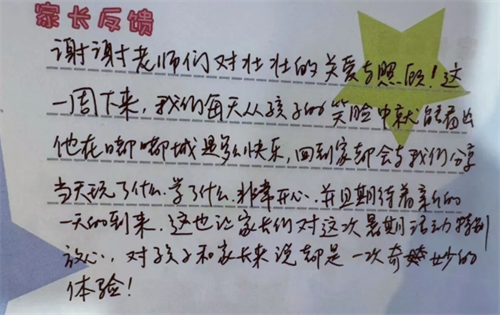 家长反馈
谢谢老师们对壮壮的关爱与照顾！这
一周下来，我们每天从孩子的笑脸中就能看出
他在嘟嘟城是多么快乐，回到家都会与我们分享
当天玩了什么，学了什么，非常开心，并且期待着新的
一天的到来，这也让家长们对这次暑期活动特别
放心，对孩子和家长来说都是一次奇妙的
体验！